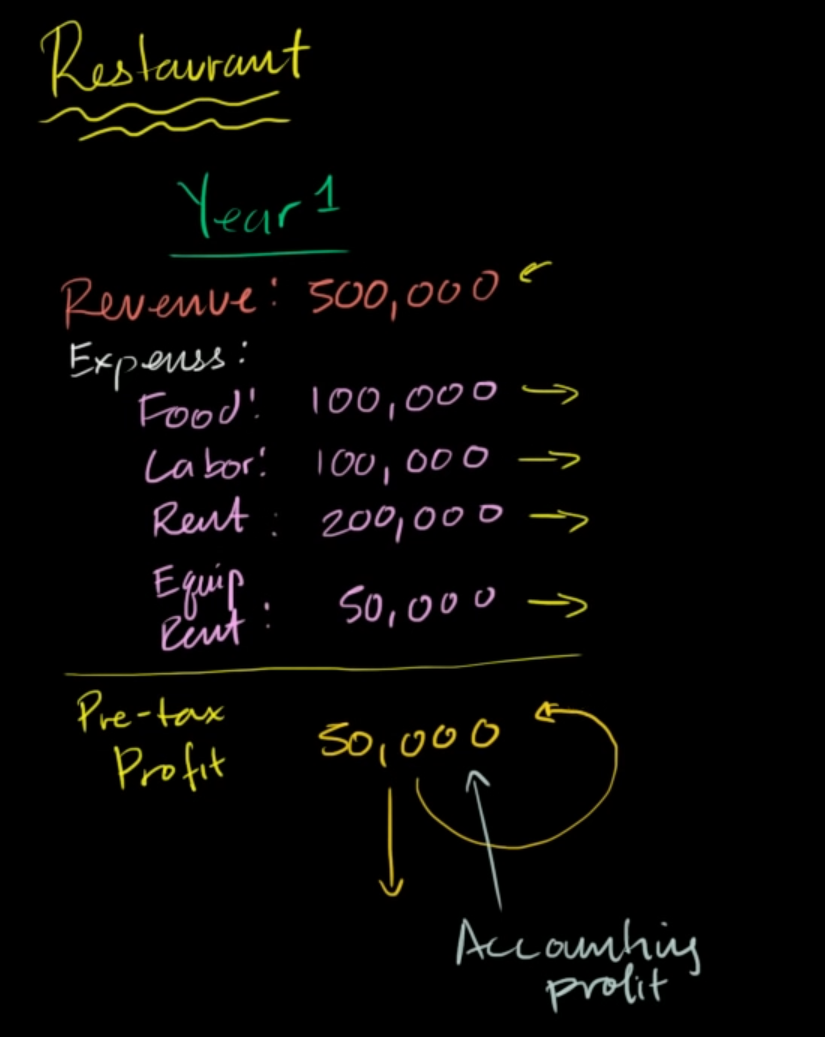 Restaurant
Year 1
Revenue: 500,000
Expenss:
Food: 100,000
Labor: 100,000
Rent : 200,000
Equip
Rent : 50,000
Pre-tax
Profit 50,000
Accounting
profit